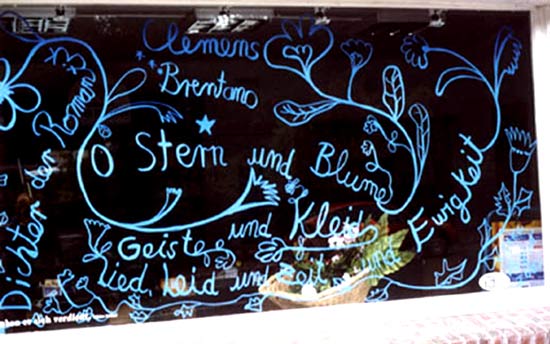 Clemens
Brentano
Dichter der Roman
O Stern und Blume
Geist und Kleid
Lied, Leid und Zeit und Ewigkeit